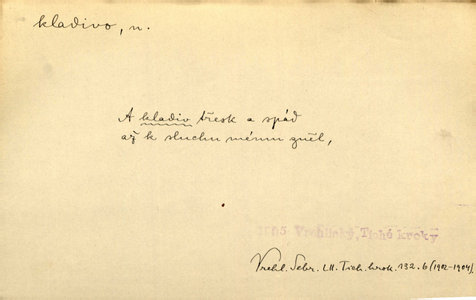 kladivo, n.
A kladiv třesk a spád
až k sluchu mému zněl,
1905 Vrchlický, Tiché kroky
Vrchl. Sebr. LII. Tich. krok. 132. 6 (1902-1904)